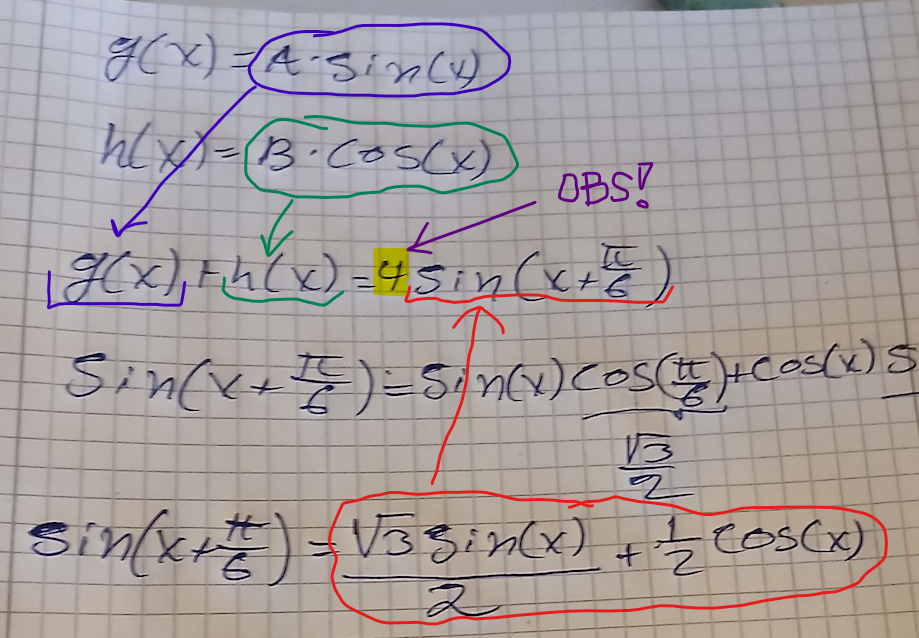 g(x) = A·sin(x)
h(x) = B·cos(x)
OBS!
g(x) + h(x) = 4 sin(x + π/6)
sin(x + π/6) = sin(x) cos(π/6) + cos(x) s
√3/2
sin(x + π/6) = √3 sin(x)/2 + 1/2 cos(x)